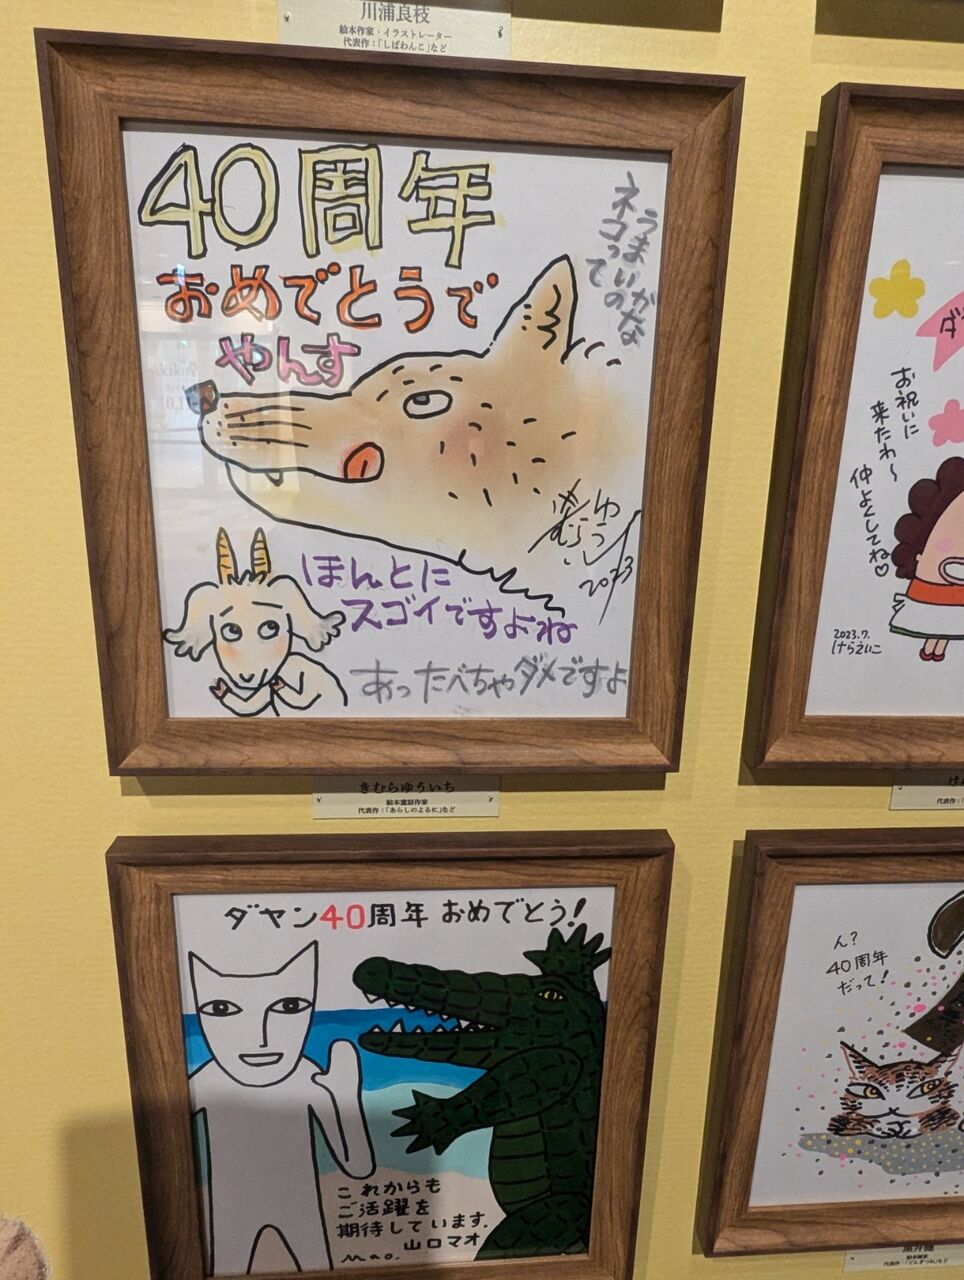 川浦良枝
絵本作家・イラストレーター
代表作：「しばわんこ」など
40周年
おめでとうで
やんす
ネコって
うまいのかな
きむら
ゆういち
2023
ほんとに
スゴイですよね
あっ たべちゃダメですよ
きむらゆういち
絵本童話作家
代表作：「あらしのよるに」など
ダ
お祝いに
来たわ〜
仲よくしてね♡
2023.7.
けらえいこ
け
代表作：「
ダヤン40周年 おめでとう！
これからも
ご活躍を
期待しています。
山口マオ
Mao.
ん？
40周年
だって！
黒井健
絵本画家
代表作：「ごんぎつね」など